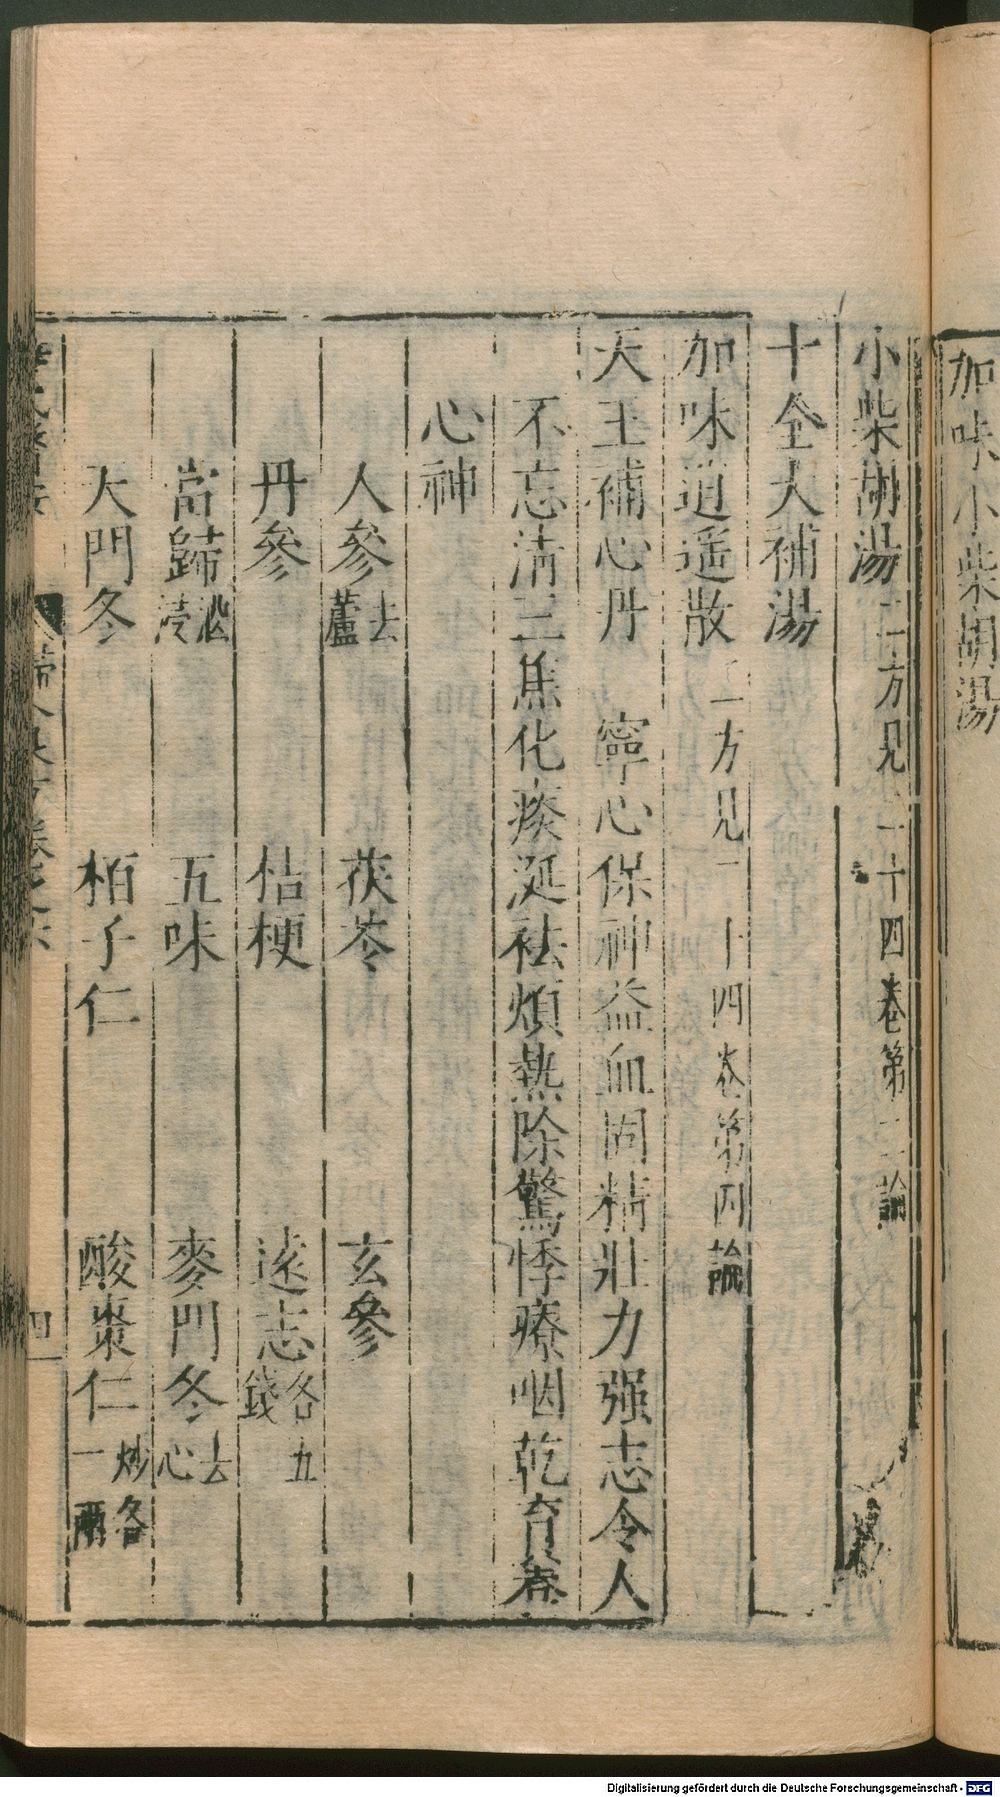 加味小柴胡湯
小柴胡湯二方見二十四卷第二論
十全大補湯
加味逍遥散二方見二十四卷第四論
天王補心丹　寧心保神益血固精壯力强志令人
不忘清三焦化痰涎祛煩熱除驚悸療咽乾育養
心神
人參去蘆　茯苓　玄參
丹參　桔梗　遠志各五錢
當歸酒浸　五味　麥門冬去心
天門冬　栢子仁　酸棗仁炒各一兩
婦人良方卷之六
四
Digitalisierung gefördert durch die Deutsche Forschungsgemeinschaft - DFG